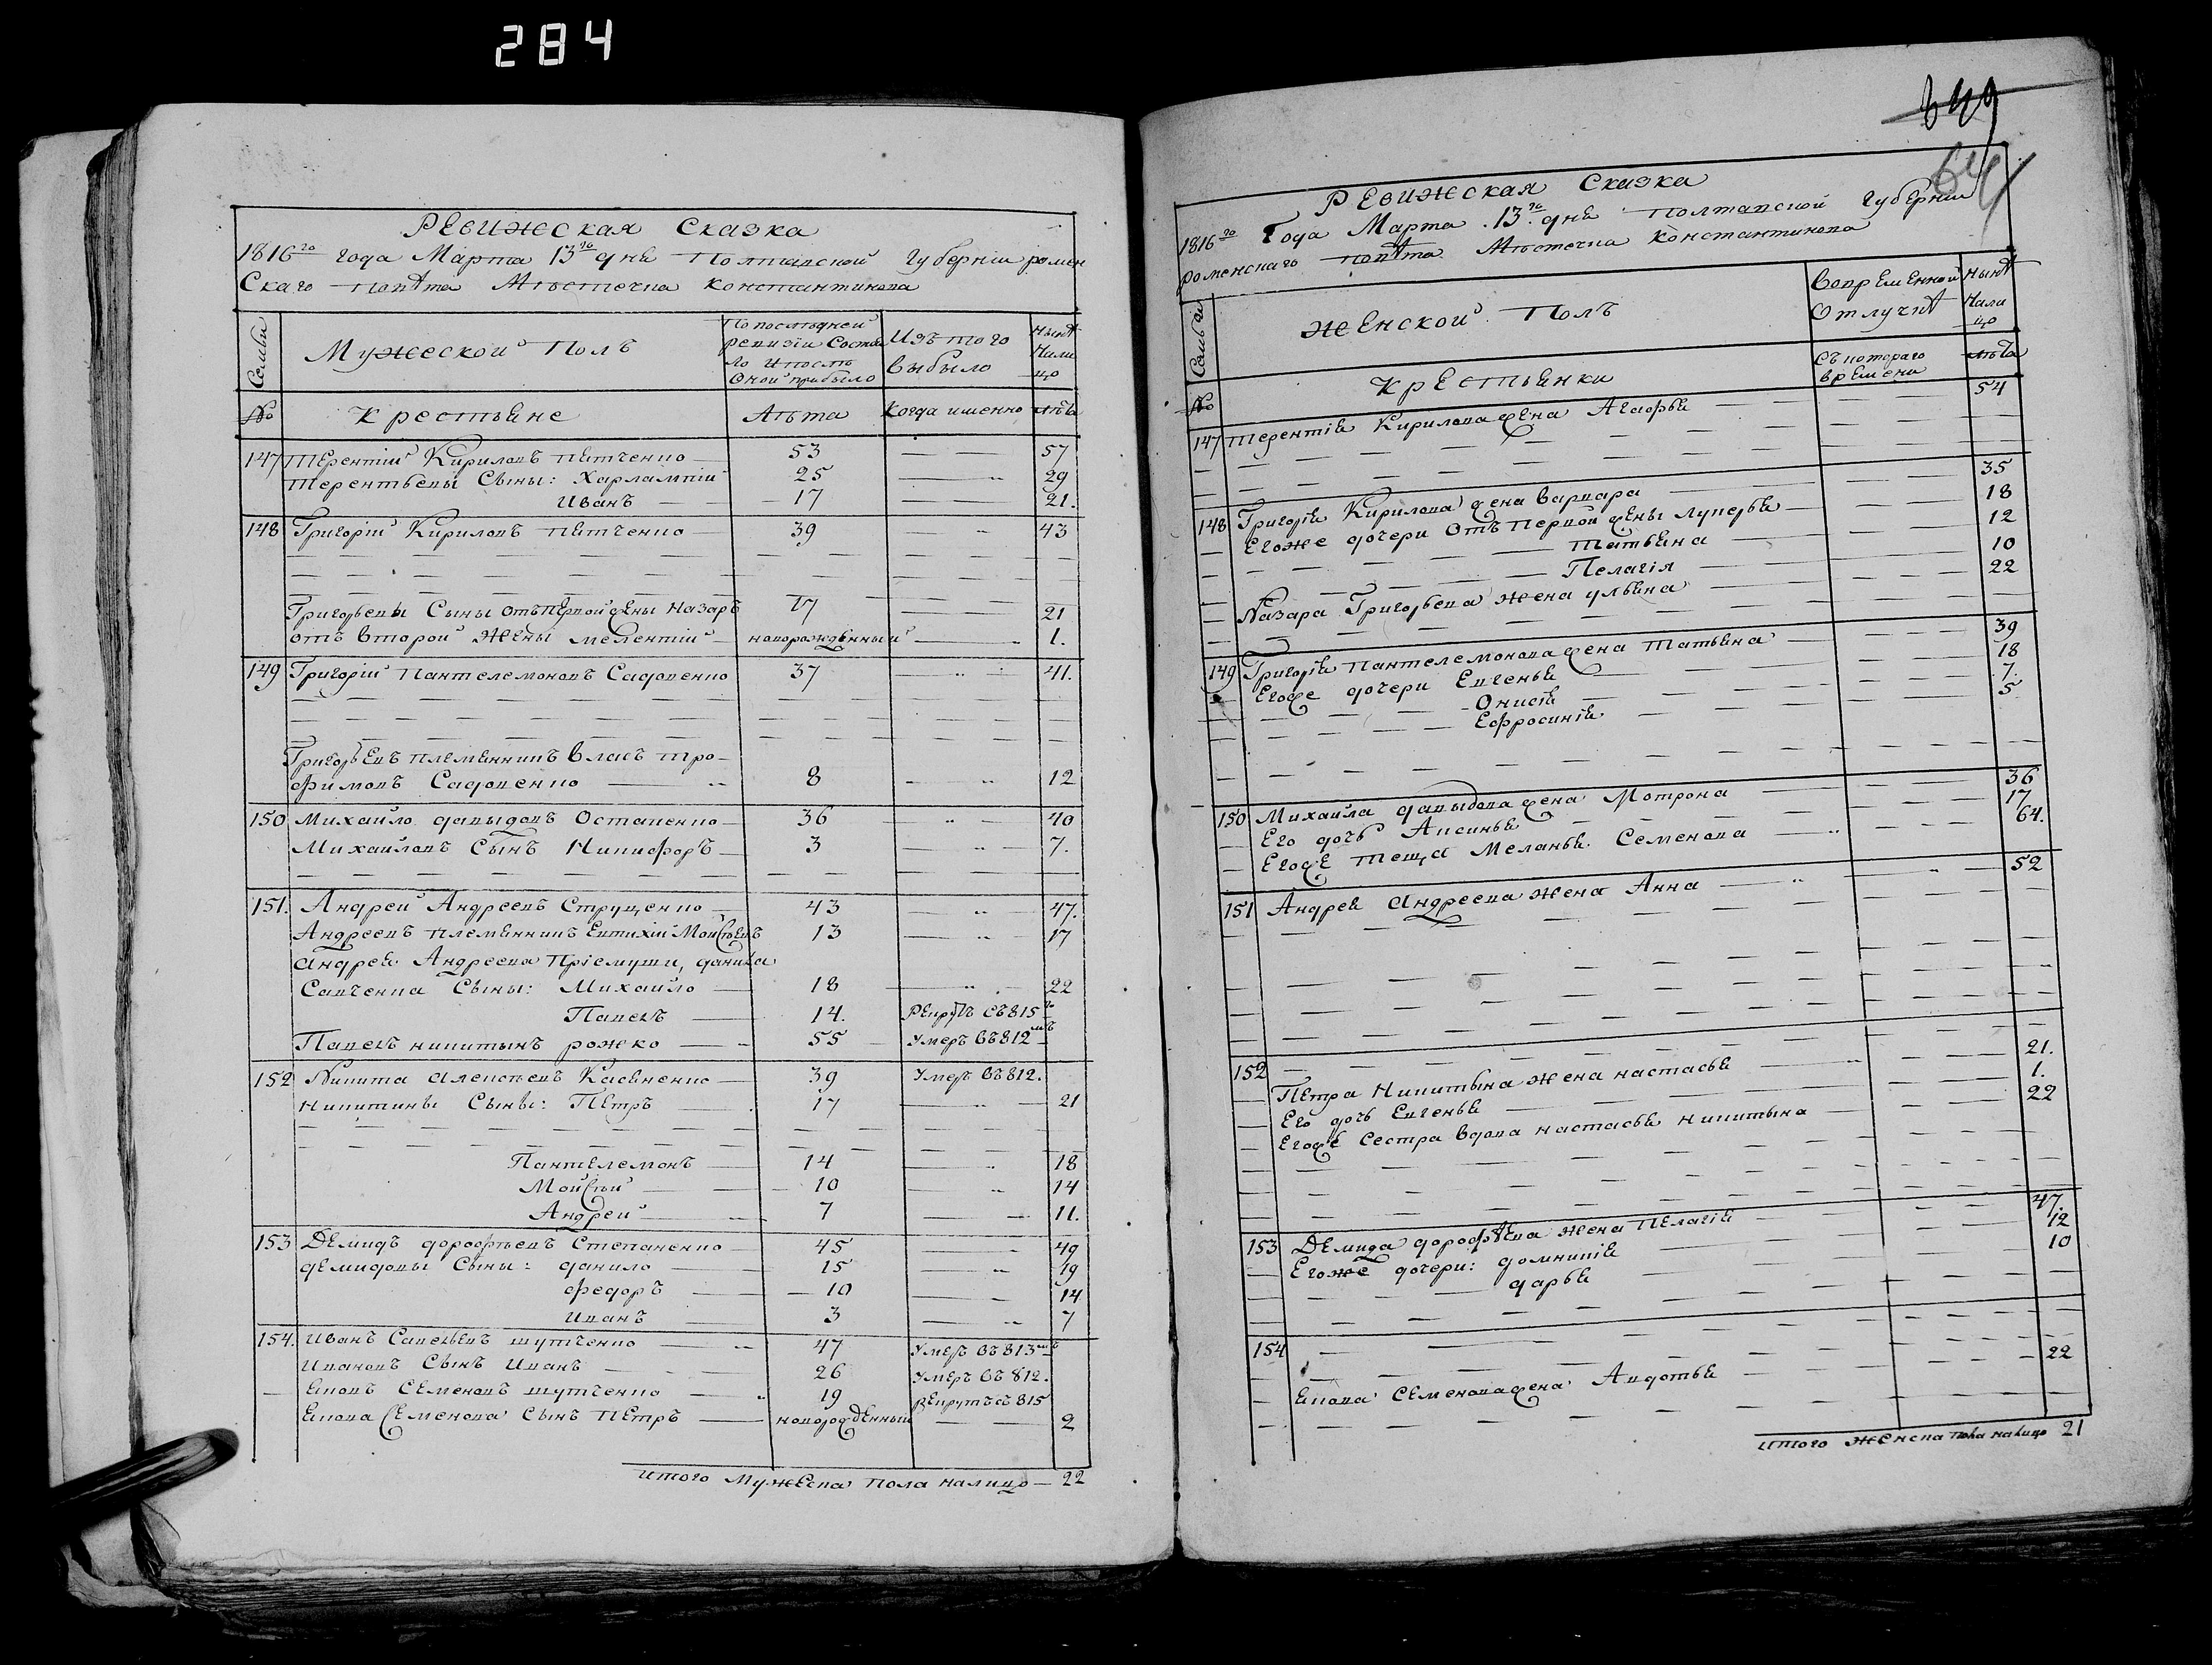 284
Ревижская Сказка
1816го года Марта 13го дня Полтавской Губерніи ромен
Скаго повѣта Мѣстечка Константинова
Семьи
Мужеской Полъ
По последней ревизіи Состояло и послѣ Оной прибыло
Изъ того выбыло
Нынѣ Налицо
№
Крестьяне
Лѣта
Когда именно
Лѣта
147 Терентій Кириловъ Петченко — 53 — 57
Терентьевы Сыны: Харлампій 25 — 29
Иванъ — 17 — 21.
148 Григорій Кириловъ Петченко — 39 — 43
Григорьевы Сыны отъ первой жены Назаръ 17 — 21
отъ второй жены Мелентій — новорожденный — 1.
149 Григорій Пантелемоновъ Садовенко 37 — 41.
Григорьевъ племянникъ Власъ Тро-
фимовъ Садовенко — 8 — 12
150 Михайло давыдовъ Остапенко — 36 — 40
Михайловъ Сынъ Никифоръ — 3 — 7.
151. Андрей Андреевъ Струценко — 43 — 47.
Андреевъ племянникъ Евтихій Мойсѣевъ 13 — 17
Андрея Андреева Пріемуши, данила
Савченка Сыны: Михайло — 18 — 22
Павелъ — 14. Рекрутъ съ 815го
Павелъ никитынъ рожко — 55 — Умеръ въ 812мъ
152 Никита Алексѣевъ Касьненко — 39 Умеръ въ 812.
Никитины Сыны: Петръ — 17 — 21
Пантелемонъ — 14 — 18
Мойсѣй — 10 — 14
Андрей — 7 — 11.
153 Демидъ дорофѣевъ Степаненко — 45 — 49
демидовы Сыны: данило — 15 — 19
федоръ — 10 — 14
Иванъ — 3 — 7
154. Иванъ Савельевъ шутченко — 47 Умеръ въ 813мъ
Ивановъ Сынъ Иванъ — 26 Умеръ въ 812.
Яковъ Семеновъ шутченко — 19 Рекрутъ съ 815
Якова Семенова Сынъ Петръ — новорожденный — 2
Итого Мужеска пола налицо — 22
649
64
Ревижская Сказка
1816го Года Марта 13го дня Полтавской Губерніи
роменскаго повѣта Мѣстечка Константинова
Семьи
Женской Полъ
Во временной Отлучкѣ
Нынѣ Налицо
№
Крестьянки
Съ котораго времени
Лѣта
147 Терентія Кирилова жена Агафья — 54
148 Григорія Кирилова жена варвара — 35
Егоже дочери отъ первой жены Лукерья — 18
Татьяна — 12
Пелагія — 10
Назара Григорьева жена ульяна — 22
149 Григорія Пантелемонова жена Татьяна — 39
Егоже дочери Евгенья — 18
Онисія — 7.
Ефросинія — 5
150 Михайла давыдова жена Мотрона — 36
Его дочь Аксинья — 17
Егоже теща Меланья Семенова — 64.
151 Андрея Андреева жена Анна — 52
152
Петра Никитына жена настасья — 21.
Его дочь Евгенья — 1.
Егоже Сестра вдова настасья никитына — 22
153 Демида дорофѣева жена Пелагія — 47.
Егоже дочери: домникія — 12
дарья — 10
154
Якова Семенова жена Авдотья — 22
Итого Женска пола налицо 21